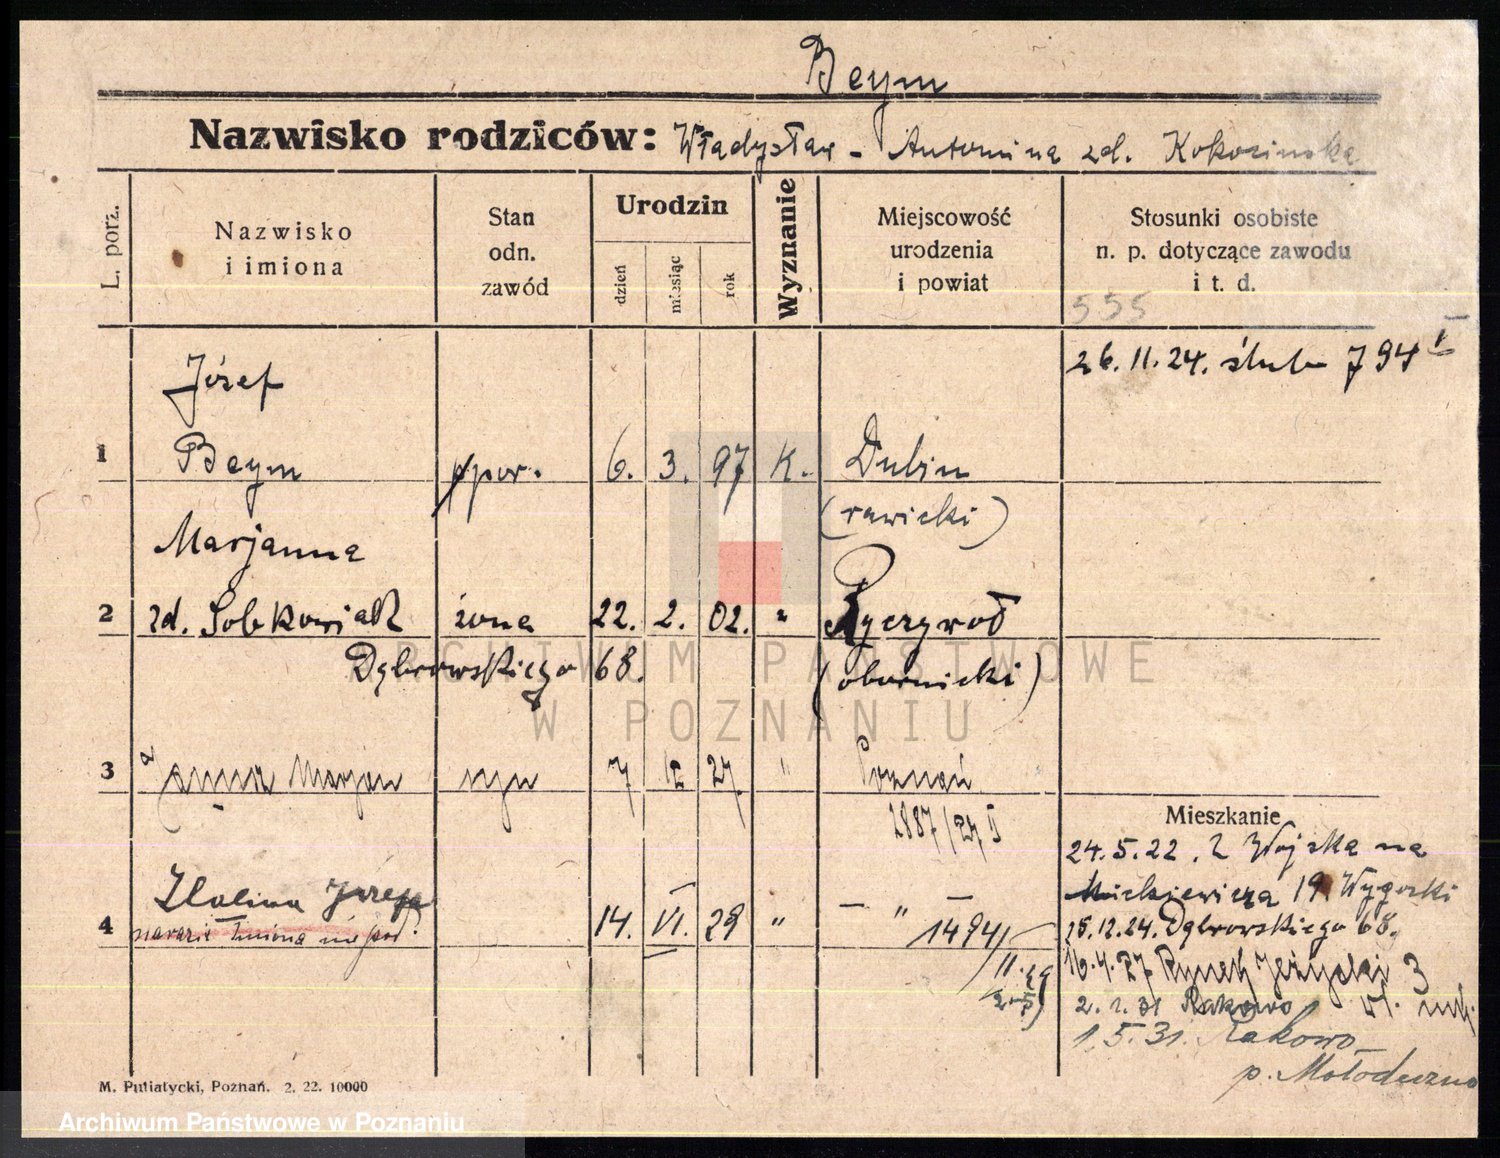 Beym
Nazwisko rodziców: Władysław - Antonina zd. Kokocinska
L. porz.
Nazwisko i imiona
Stan odn. zawód
Urodzin
dzień
miesiąc
rok
Wyznanie
Miejscowość urodzenia i powiat
Stosunki osobiste n. p. dotyczące zawodu i t. d.
555
26.11.24. ślub 794 I
Józef
1 Beym ppor. 6. 3. 97 K. Dubin
(rawicki)
Marjanna
2 zd. Sobkowiak żona 22. 2. 02. " Ryczywoł
Dąbrowskiego 68. (obornicki)
3 Janusz Marjan syn 7 12 27. " Poznań
2887/27 I
Mieszkanie
24.5.22. Z Wojska na
Mickiewicza 19 Wygocki
4 Halina Józefa 14. VI. 29 " — " — 1494/
narazie imiona nie pod.
15.12.24. Dąbrowskiego 68.
16.4.27 Rynek Jeżycki 3
2.1.31 Rakowo
1.5.31. Rakowo
p. Mołodeczno
M. Putiatycki, Poznań. 2. 22. 10000
ARCHIWUM PAŃSTWOWE
W POZNANIU
Archiwum Państwowe w Poznaniu